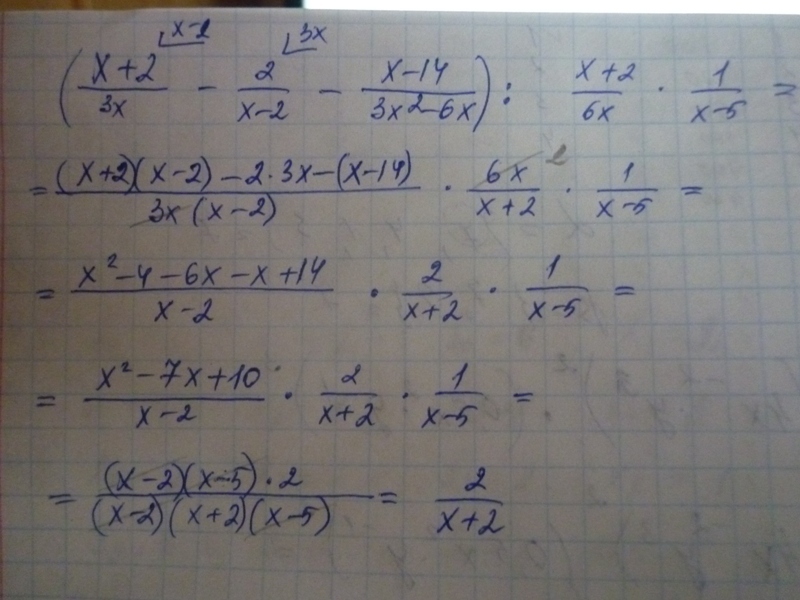 x-2 3x
((x+2)/(3x) - 2/(x-2) - (x-14)/(3x²-6x)) : (x+2)/(6x) · 1/(x-5) =
= ((x+2)(x-2) - 2·3x - (x-14))/(3x(x-2)) · 6x/(x+2) · 1/(x-5) = 2
= (x²-4-6x-x+14)/(x-2) · 2/(x+2) · 1/(x-5) =
= (x²-7x+10)/(x-2) · 2/(x+2) · 1/(x-5) =
= ((x-2)(x-5)·2)/((x-2)(x+2)(x-5)) = 2/(x+2)